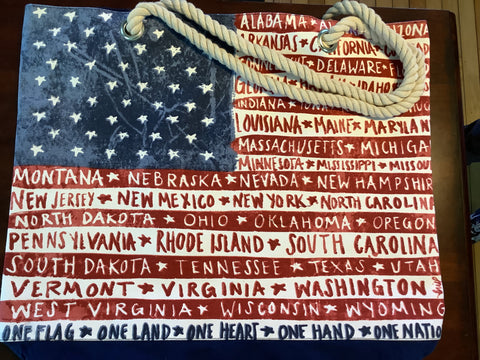 ALABAMA ★ AL ARIZONA
ARKANSAS ★ CALIFORNIA ★ CO
CONNECTICUT ★ DELAWARE ★ FL
GEORGIA ★ HAWAII IDAHO
INDIANA ★
LOUISIANA ★ MAINE ★ MARYLAN
MASSACHUSETTS ★ MICHIGA
MINNESOTA ★ MISSISSIPPI ★ MISSOU
MONTANA ★ NEBRASKA ★ NEVADA ★ NEW HAMPSHIR
NEW JERSEY ★ NEW MEXICO ★ NEW YORK ★ NORTH CAROLINA
NORTH DAKOTA ★ OHIO ★ OKLAHOMA ★ OREGON
PENNSYLVANIA ★ RHODE ISLAND ★ SOUTH CAROLINA
SOUTH DAKOTA ★ TENNESSEE ★ TEXAS ★ UTAH
VERMONT ★ VIRGINIA ★ WASHINGTON
WEST VIRGINIA ★ WISCONSIN ★ WYOMING
ONE FLAG ★ ONE LAND ★ ONE HEART ★ ONE HAND ★ ONE NATIO